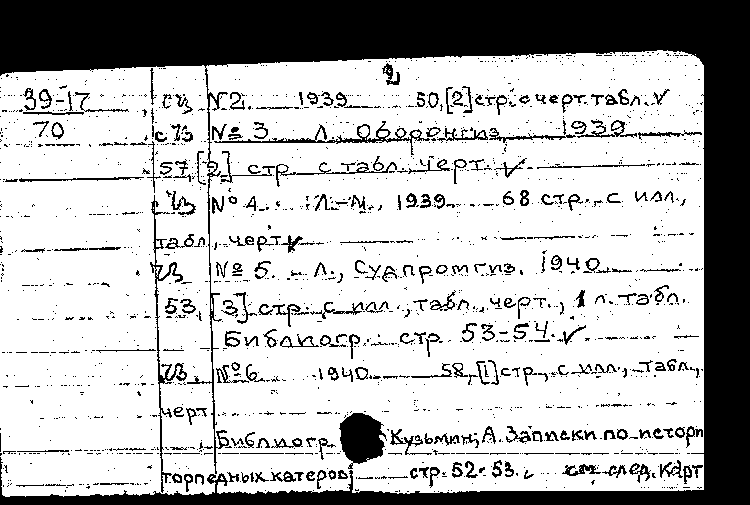 2
39-17 сз №2. 1939 50,[2]стр. с черт. табл. ✓
70 сз № 3 Л., Оборонгиз, 1939
57,[2] стр. с табл., черт. ✓
№ 4. Л.-М., 1939. 68 стр. с илл.,
табл., черт ✓
№ 5. - Л., Судпромгиз. 1940
53, [3] стр. с илл., табл., черт., 1 л. табл.
Библиогр. стр 53-54. ✓
№ 6 1940 58,[1]стр., с илл., табл.,
черт.
Библиогр Кузьмин, А. Записки по истори
торпедных катеров; стр. 52-53. см. след. карт